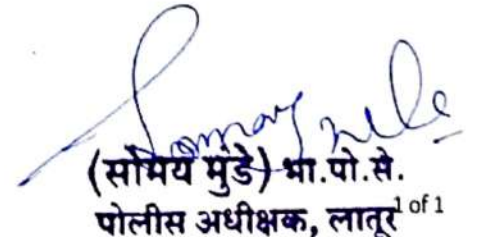 (सोमय मुंडे) भा.पो.से.
पोलीस अधीक्षक, लातूर
1 of 1